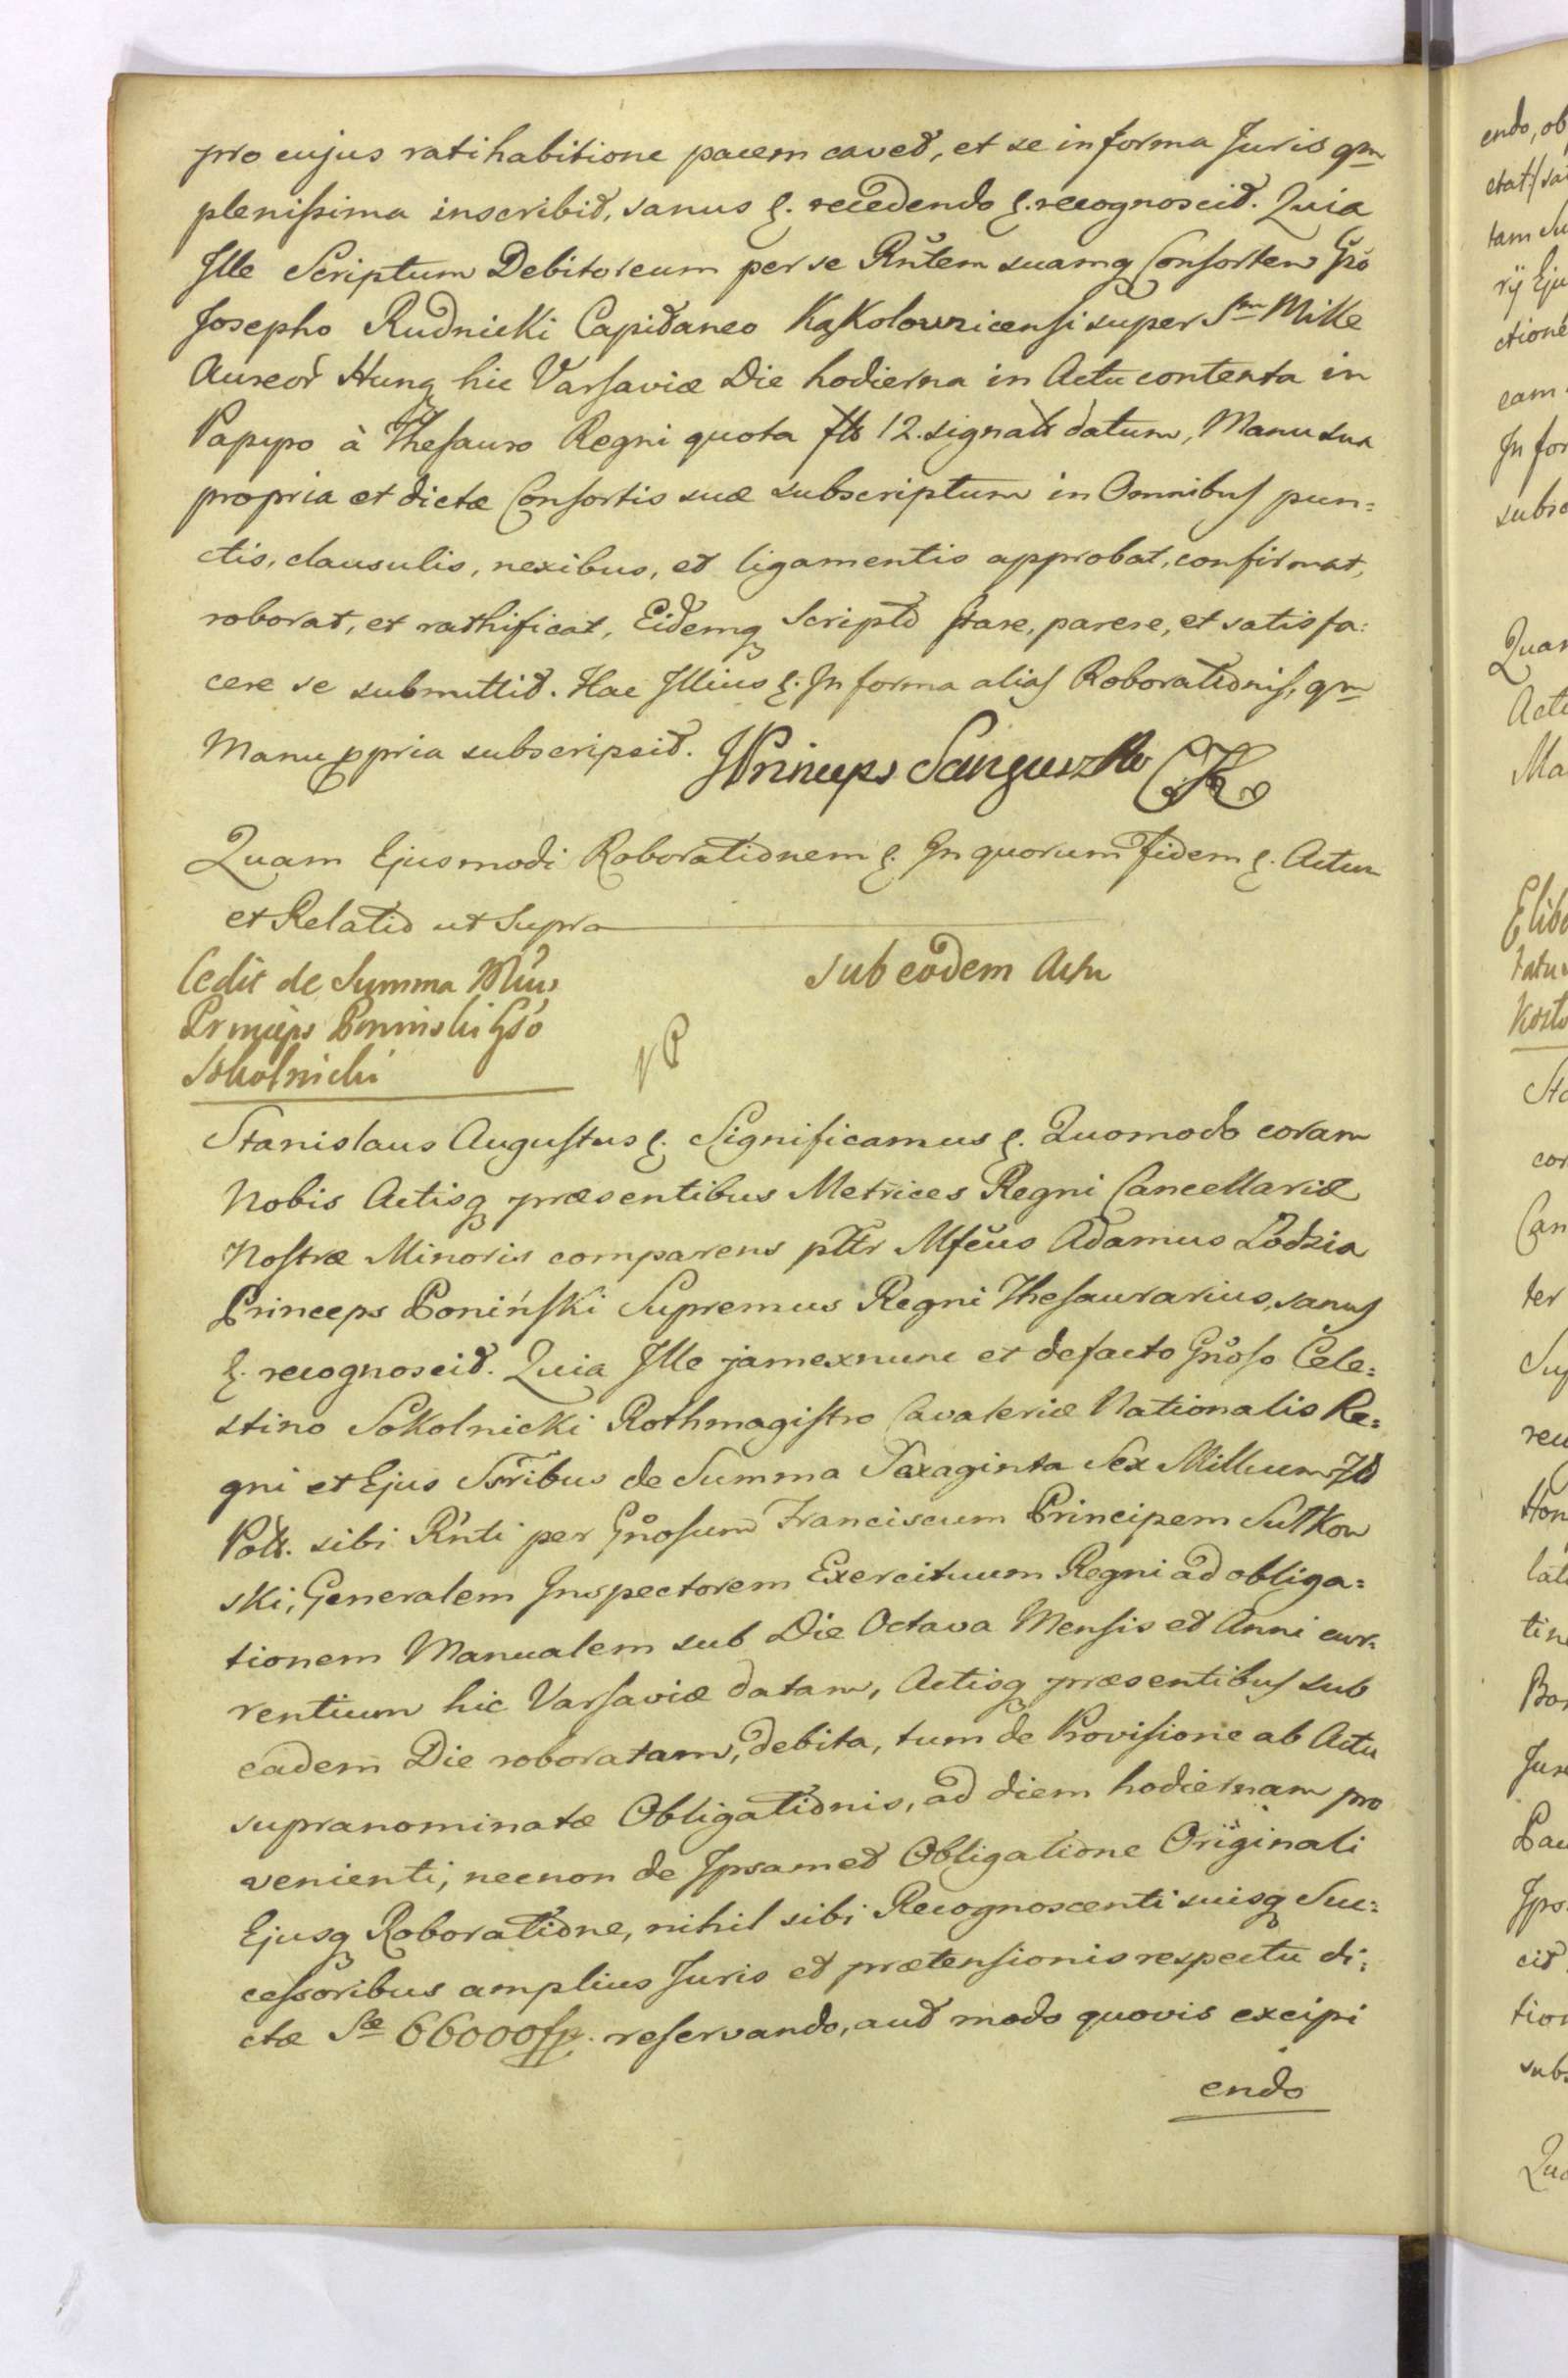 pro cujus ratihabitione pacem caved, et se in forma Juris qm
plenissima inscribit, sanus &. recedendo &. recognoscit. Quia
Ille Scriptum Debitoreum per se Rntem suamq Consortem Gso
Josepho Rudnicki Capitaneo Kąkolownicensi super Sm Mille
Aureor Hung hic Varsaviæ Die hodierna in Actu contenta in
Papyro à Thesauro Regni quota fls 12. signats datum, Manu sua
propria et dictæ Consortis suæ subscriptum in Omnibus pun=
ctis, clausulis, nexibus, et ligamentis approbat, confirmat,
roborat, et rathificat, Eidemq Scripto stare, parere, et satisfa:
cere se submittit. Hac Illius &. In forma alias Roborationis, qm
Manu ppria subscripsit. Princeps Sanguszko
Quam Ejusmodi Roborationem &. In quorum fidem &. Actum
et Relatio ut Supra
Cedit de Summa
Sub eodem Actu
Princeps Poninski Gso
Sokolnicki
Stanislaus Augustus &. Significamus &. Quomodo coram
Nobis Actisq præsentibus Metrices Regni Cancellariæ
Nostræ Minoris comparens pttr Mfcus Adamus Łodzia
Princeps Poniński Supremus Regni Thesaurarius, sanus
&. recognoscit. Quia Ille jam exnunc et defacto Gnoso Cele=
stino Sokolnicki Rothmagistro Cavaleriæ Nationalis Re=
gni et Ejus Ssribus de Summa Sexaginta Sex Millium fls
Polls. sibi Rnti per Gnosum Franciscum Principem Sułkow
ski, Generalem Inspectorem Exercituum Regni ad obliga=
tionem Manualem sub Die Octava Mensis et Anni cur=
rentium hic Varsaviæ datam, Actisq præsentibus sub
eadem Die roboratam, debita, tum de Provisione ab Actu
supranominatæ Obligationis, ad diem hodiernam pro
venienti, necnon de Ipsamet Obligatione Originali
Ejusq Roboratione, nihil sibi Recognoscenti suisq Suc=
cessoribus amplius Juris et prætensionis respectu di:
ctæ Sæ 66000 fp. reservando, aut modo quovis excipi
endo